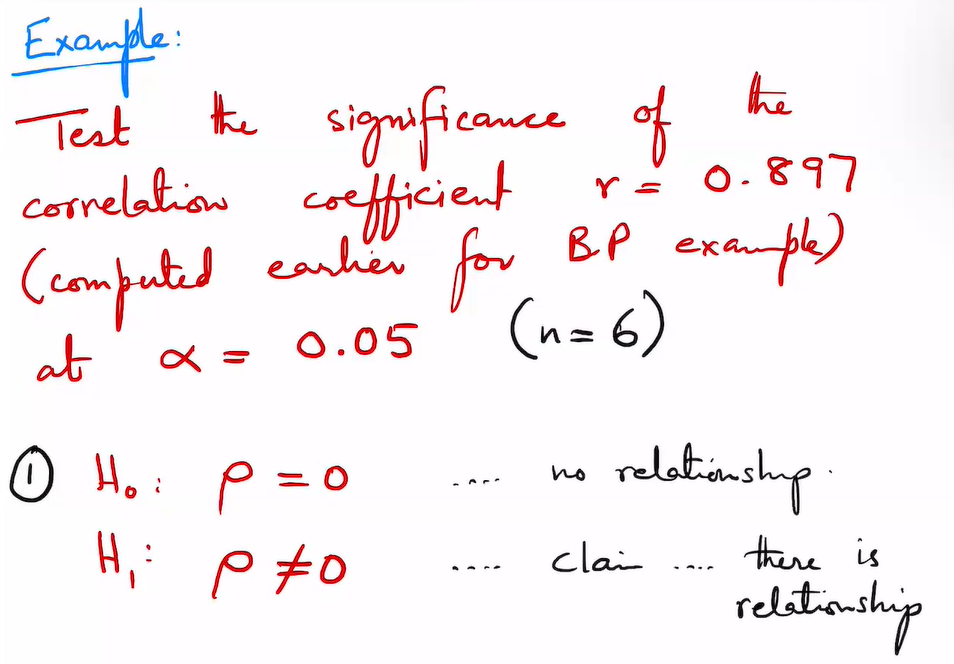 Example:
Test the significance of the
correlation coefficient r = 0.897
(computed earlier for BP example)
at α = 0.05 (n = 6)
① H₀: ρ = 0 .... no relationship.
H₁: ρ ≠ 0 .... claim .... there is
relationship